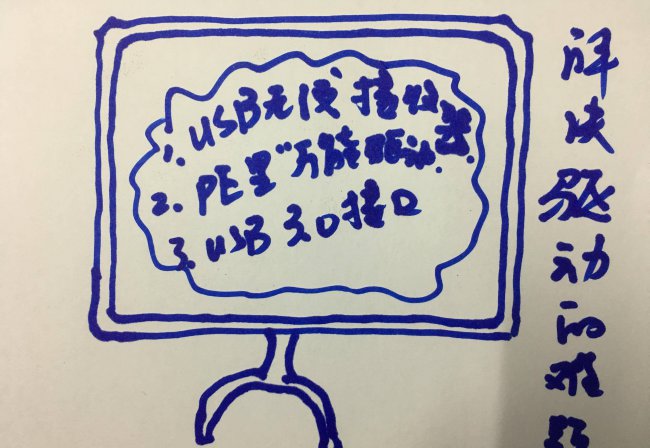 1. USB无线接收器.
2. PE里"万能驱动.
3. USB 3.0 接口
解决驱动的难题